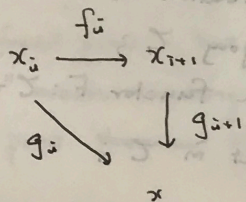 f_i
x_i → x_{i+1}
g_i g_{i+1}
x